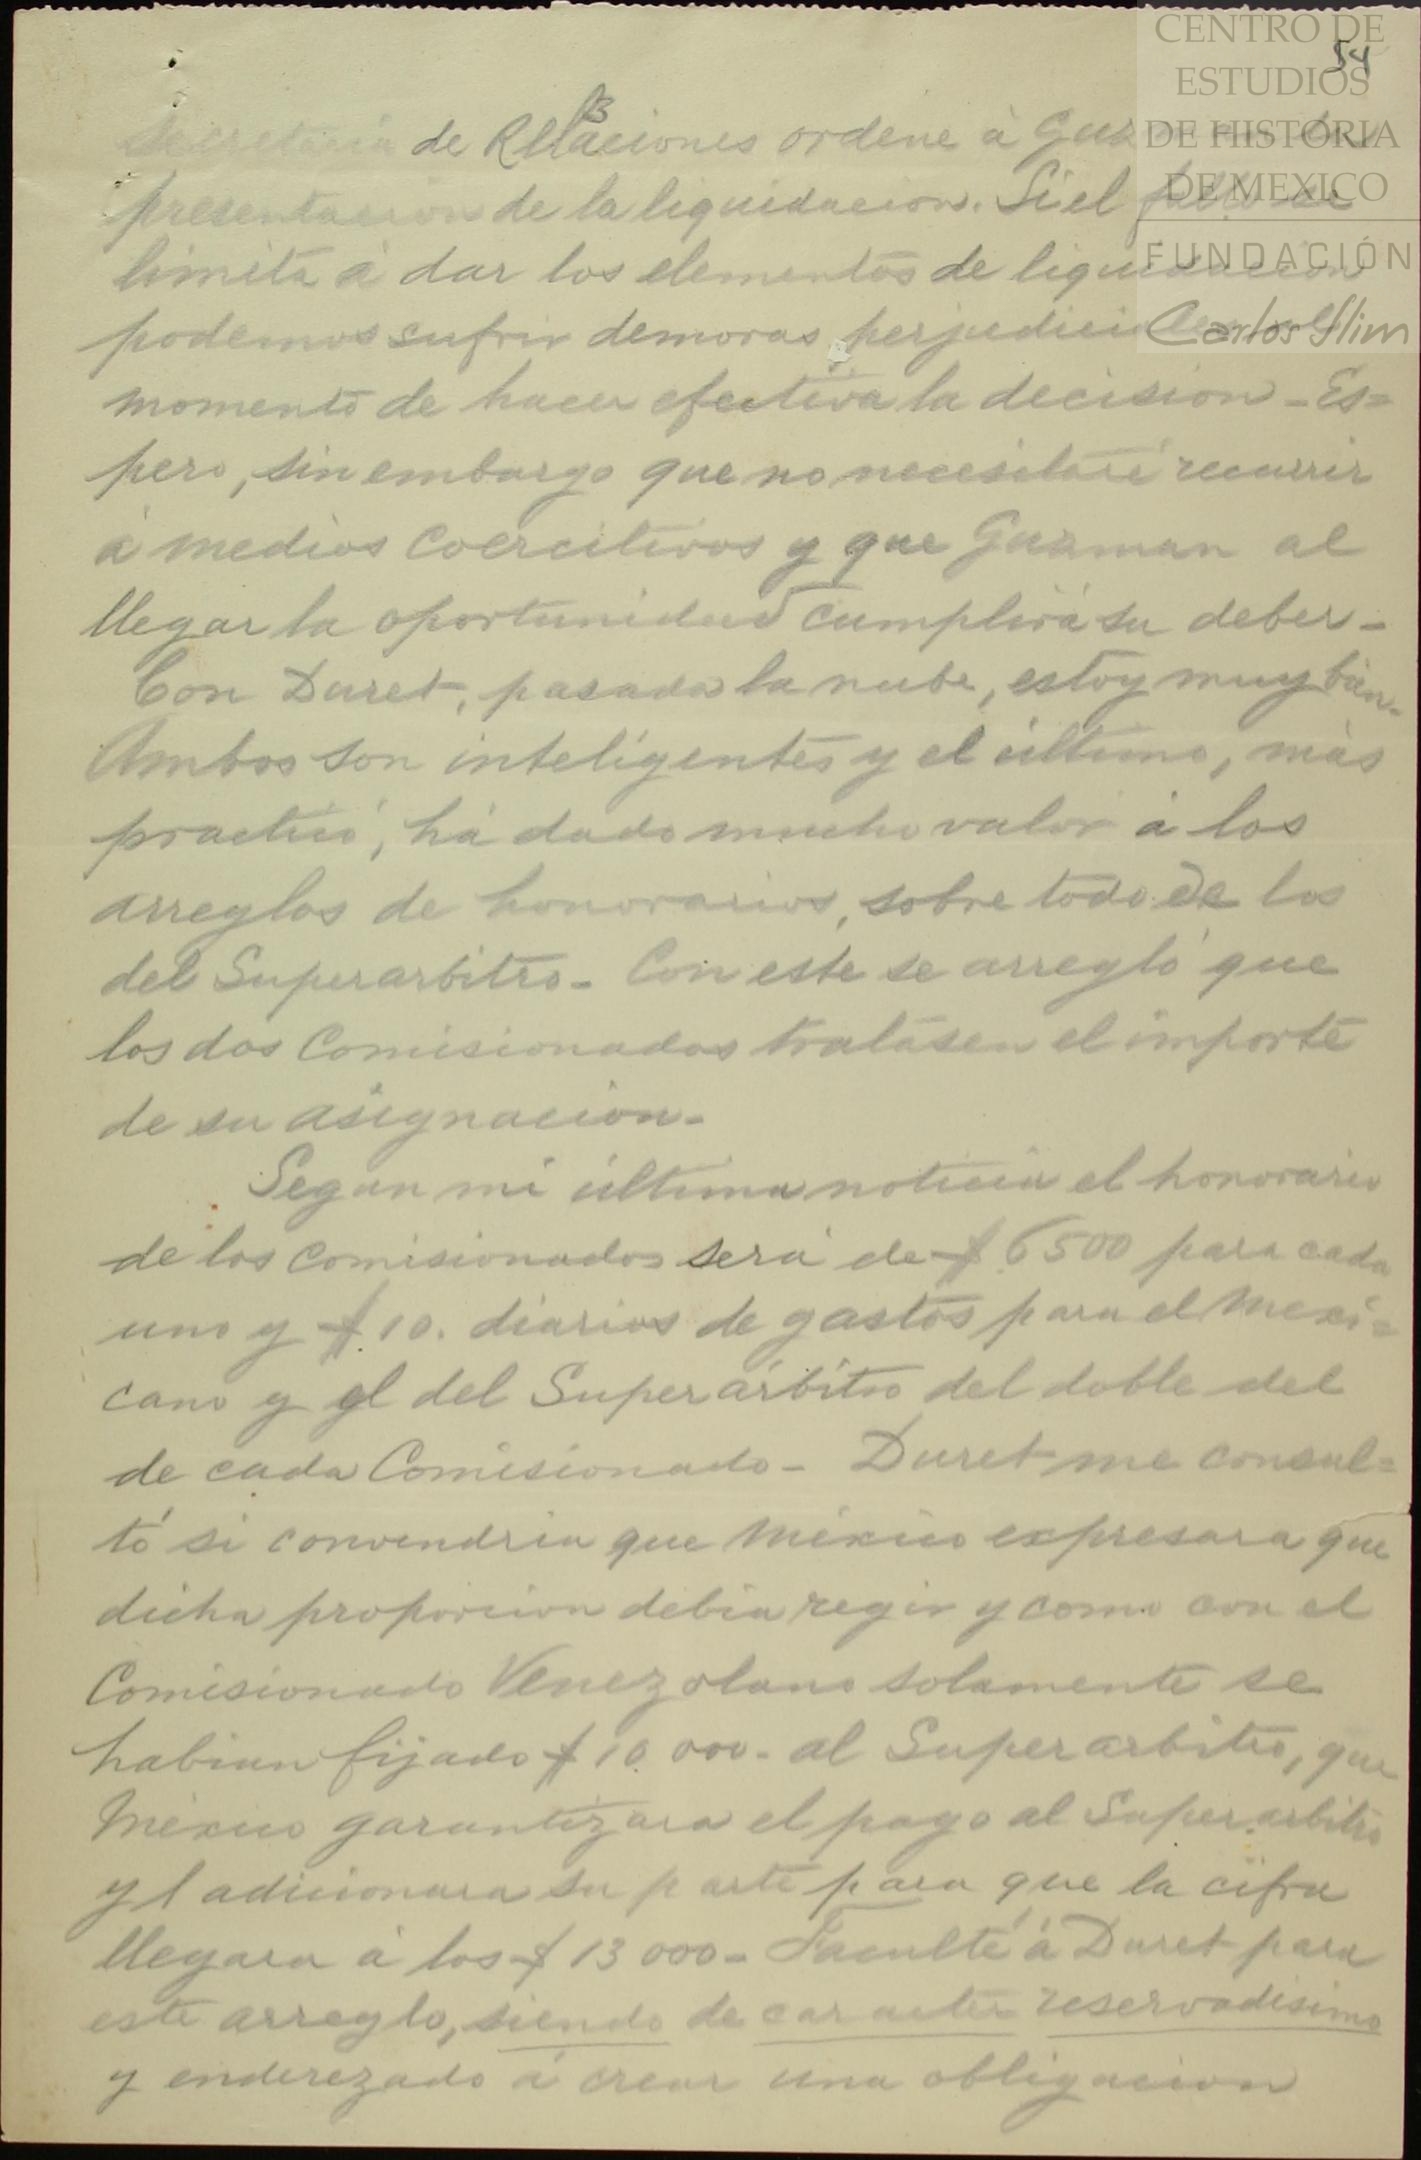 CENTRO DE
ESTUDIOS
DE HISTORIA
DE MEXICO
FUNDACIÓN
Carlos Slim
54
3
Secretaria de Relaciones ordene á Guzman la
presentacion de la liquidacion. Si el fallo se
limita á dar los elementos de liquidacion
podemos sufrir demoras perjudiciales al
momento de hacer efectiva la decision - Es=
pero, sin embargo que no necesitaré recurrir
á medios coercitivos y que Guzman al
llegar la oportunidad cumplirá su deber -
Con Duret, pasada la nube, estoy muy bien -
Ambos son inteligentes y el último, más
practico, há dado mucho valor á los
arreglos de honorarios, sobre todo de los
del Superarbitro - Con este se arregló que
los dos Comisionados tratásen el importe
de su asignacion -
Segun mi última noticia el honorario
de los comisionados será de $ 6500 para cada
uno y $ 10. diarios de gastos para el Mexi=
cano y el del Superárbitro del doble del
de cada Comisionado - Duret me consul=
tó si convendria que México expresara que
dicha proporcion debia regir y como con el
Comisionado Venezolano solamente se
habian fijado $ 10.000 - al Superarbitro, que
México garantizara el pago al Superarbitro
y l adicionara su parte para que la cifra
llegara á los $ 13 000 - Faculté á Duret para
este arreglo, siendo de caracter reservadisimo
y enderezado á crear una obligacion